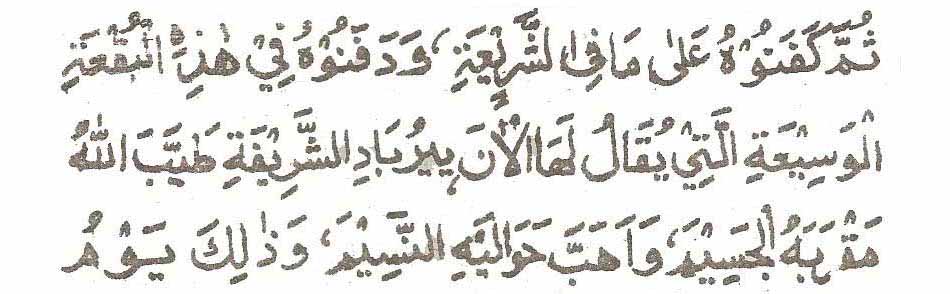 ثُمَّ كَفَنُوْهُ عَلٰى مَا فِى الشَّرِيْعَةِ، وَدَفَنُوْهُ فِيْ هٰذِهِ الْبُقْعَةِ
الْوَسِيْعَةِ الَّتِيْ يُقَالُ لَهَا الْاٰنَ بِيرُبَادِ الشَّرِيْفَةِ طَيَّبَ اللّٰهُ
مَقْرَبَهُ الْجَسِيْمَ، وَاَهَبَّ حَوَالَيْهِ النَّسِيْمَ، وَذٰلِكَ يَوْمُ